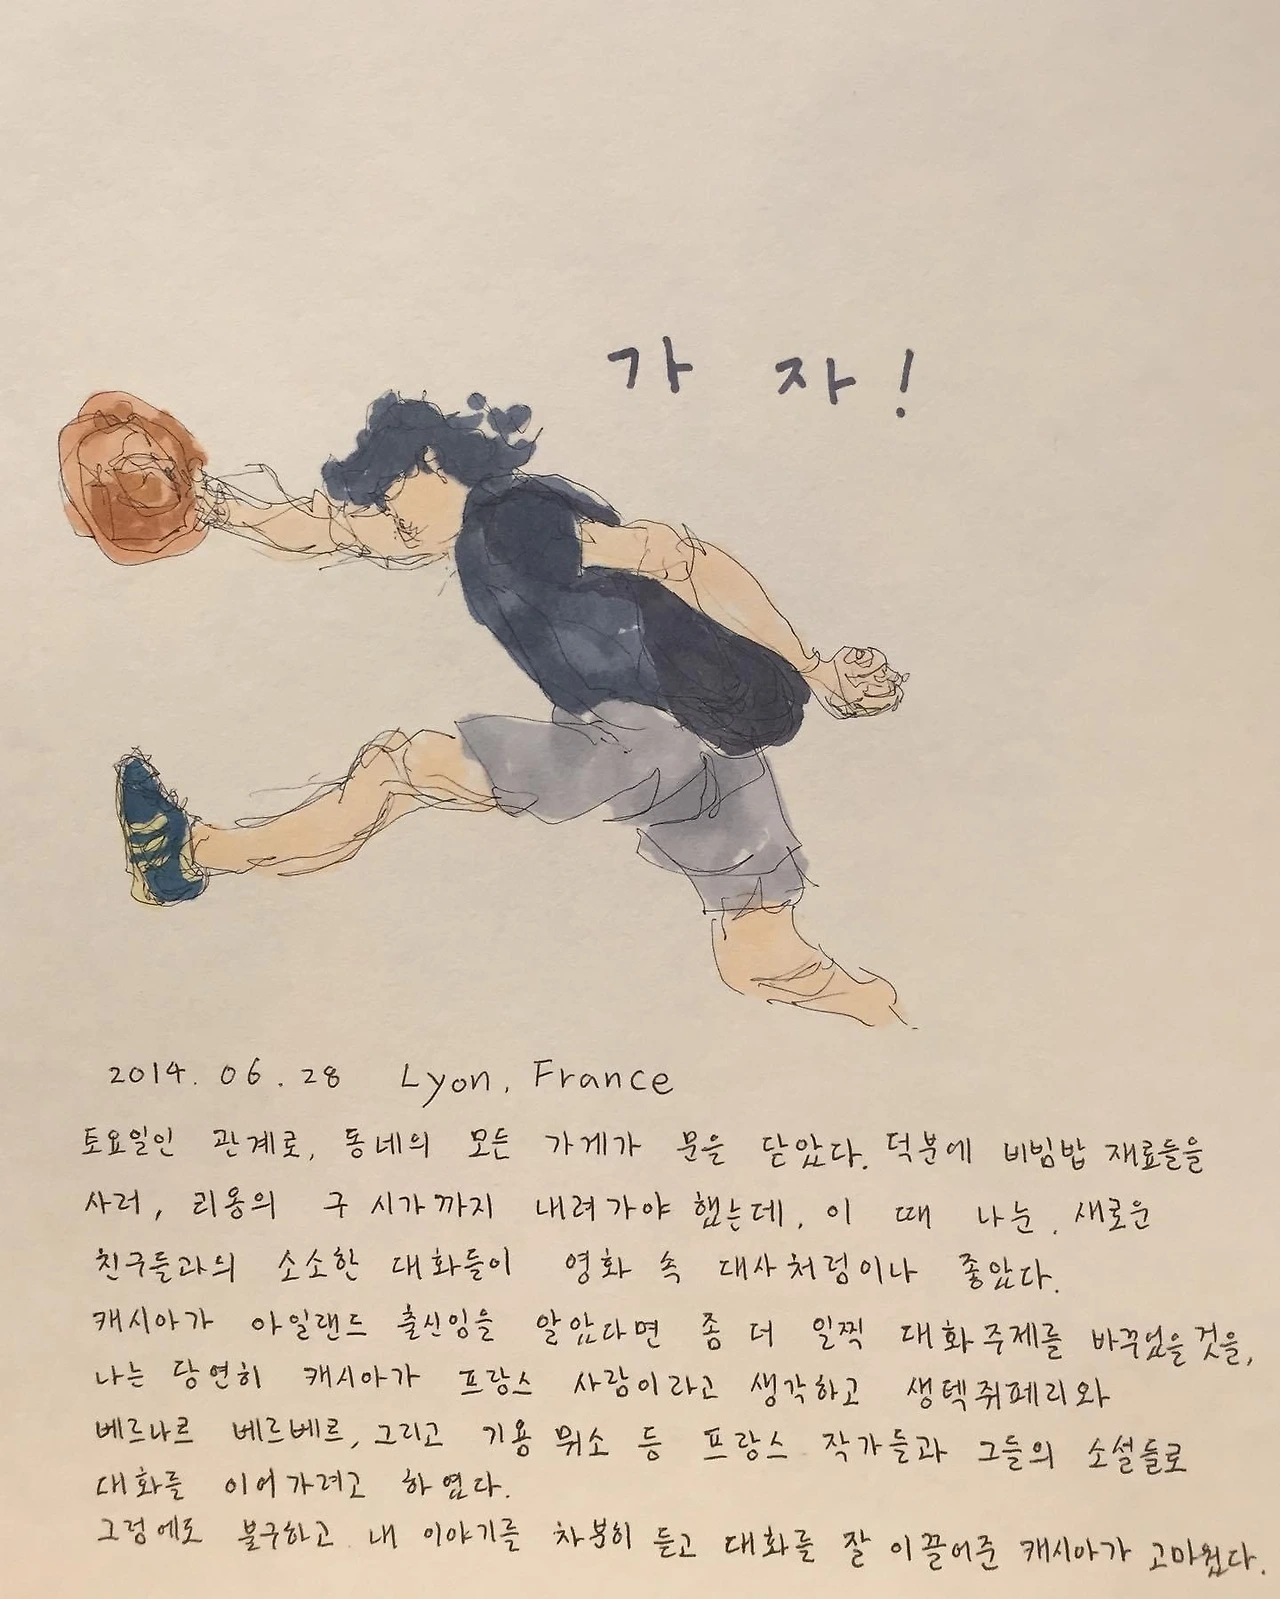 가 자!
2014. 06. 28 Lyon, France
토요일인 관계로, 동네의 모든 가게가 문을 닫았다. 덕분에 비빔밥 재료들을
사러, 리용의 구 시가까지 내려가야 했는데, 이 때 나눈, 새로운
친구들과의 소소한 대화들이 영화 속 대사처럼이나 좋았다.
캐시아가 아일랜드 출신임을 알았다면 좀 더 일찍 대화주제를 바꾸었을 것을,
나는 당연히 캐시아가 프랑스 사람이라고 생각하고 생텍쥐페리와
베르나르 베르베르, 그리고 기용 뮈소 등 프랑스 작가들과 그들의 소설들로
대화를 이어가려고 하였다.
그럼에도 불구하고 내 이야기를 차분히 듣고 대화를 잘 이끌어준 캐시아가 고마웠다.